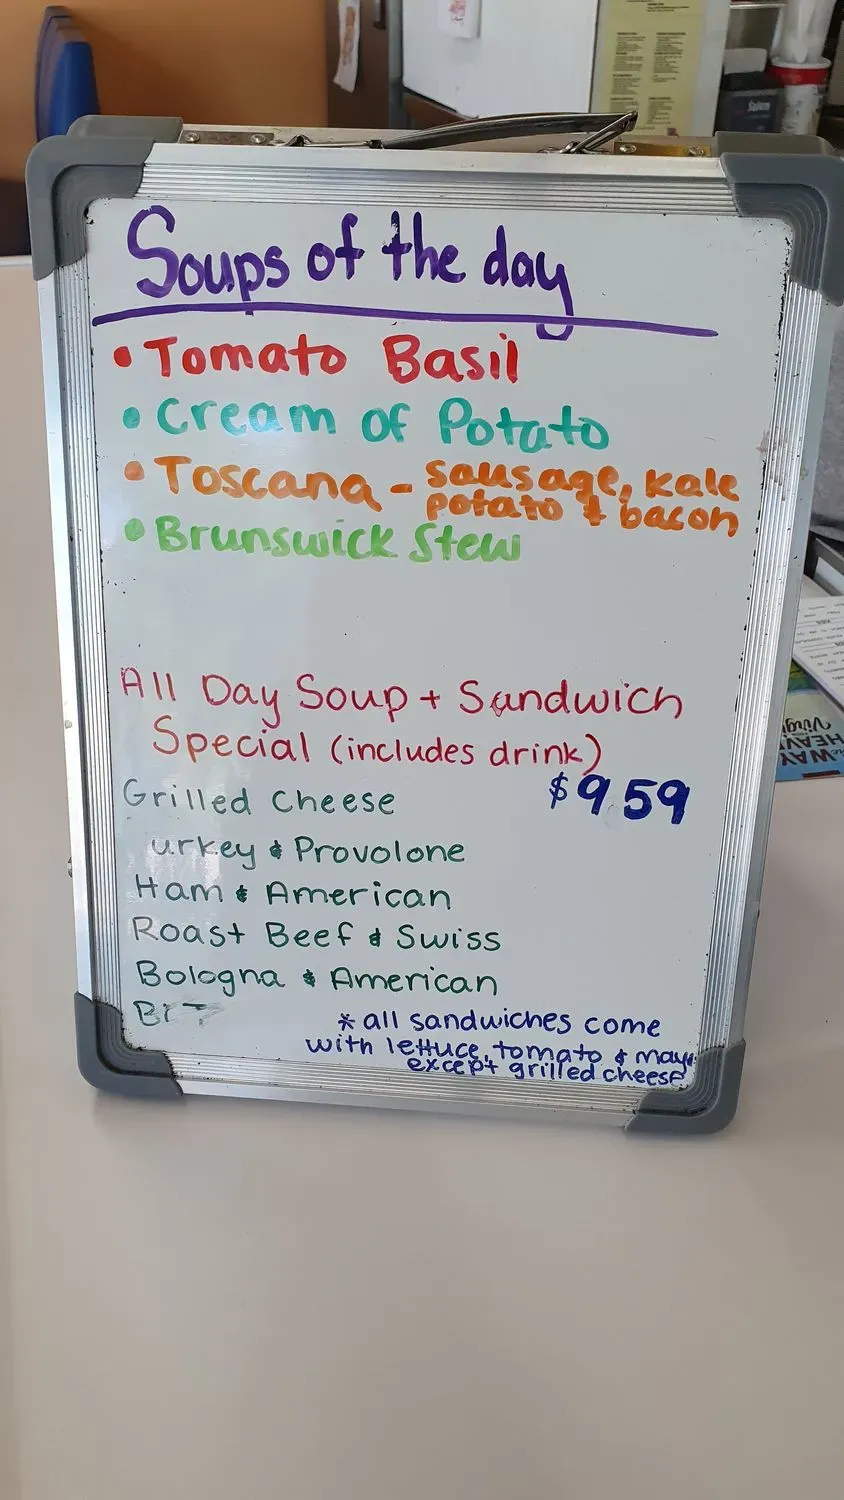 Soups of the day
• Tomato Basil
• Cream of Potato
• Toscana - sausage, kale
potato & bacon
• Brunswick Stew
All Day Soup + Sandwich
Special (includes drink)
Grilled Cheese $9.59
urkey & Provolone
Ham & American
Roast Beef & Swiss
Bologna & American
BLT
* all sandwiches come
with lettuce, tomato & mayo
except grilled cheese